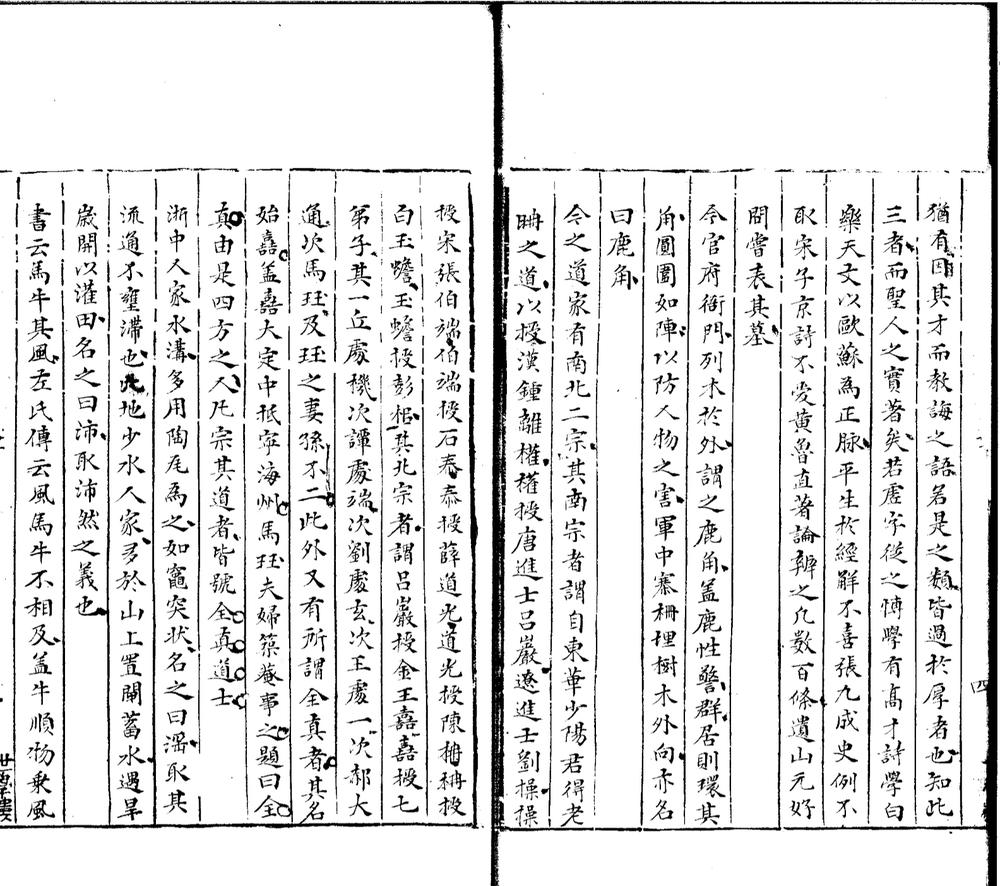 猶有因其才而教誨之語若是之類皆過於厚者也知此
三者而聖人之實著矣若虛字從之博學有高才詩學白
樂天文以歐蘇為正脉平生於經解不喜張九成史例不
取宋子京詩不愛黃魯直著論辨之凡數百條遺山元好
問嘗表其墓
今官府衙門列木於外謂之鹿角盖鹿性警群居則環其
角圓圍如陣以防人物之害軍中寨柵埋樹木外向亦名
曰鹿角
今之道家有南北二宗其南宗者謂自東華少陽君得老
聃之道以授漢鍾離權權授唐進士吕巖遼進士劉操操
授宋張伯端伯端授石泰泰授薛道光道光授陳柟柟授
白玉蟾玉蟾授彭梠其北宗者謂吕巖授金王嘉嘉授七
弟子其一丘處機次譚處端次劉處玄次王處一次郝大
通次馬珏及珏之妻孫不二此外又有所謂全真者其名
始嘉盖嘉大定中抵寧海州馬珏夫婦築菴事之題曰全
真由是四方之人凡宗其道者皆號全真道士
浙中人家水溝多用陶瓦為之如竈突狀名之曰𣿬取其
流通不壅滯也此地少水人家多於山上置閘蓄水遇旱
歲開以灌田名之曰沛取沛然之義也
書云馬牛其風左氏傳云風馬牛不相及盖牛順物乗風
四